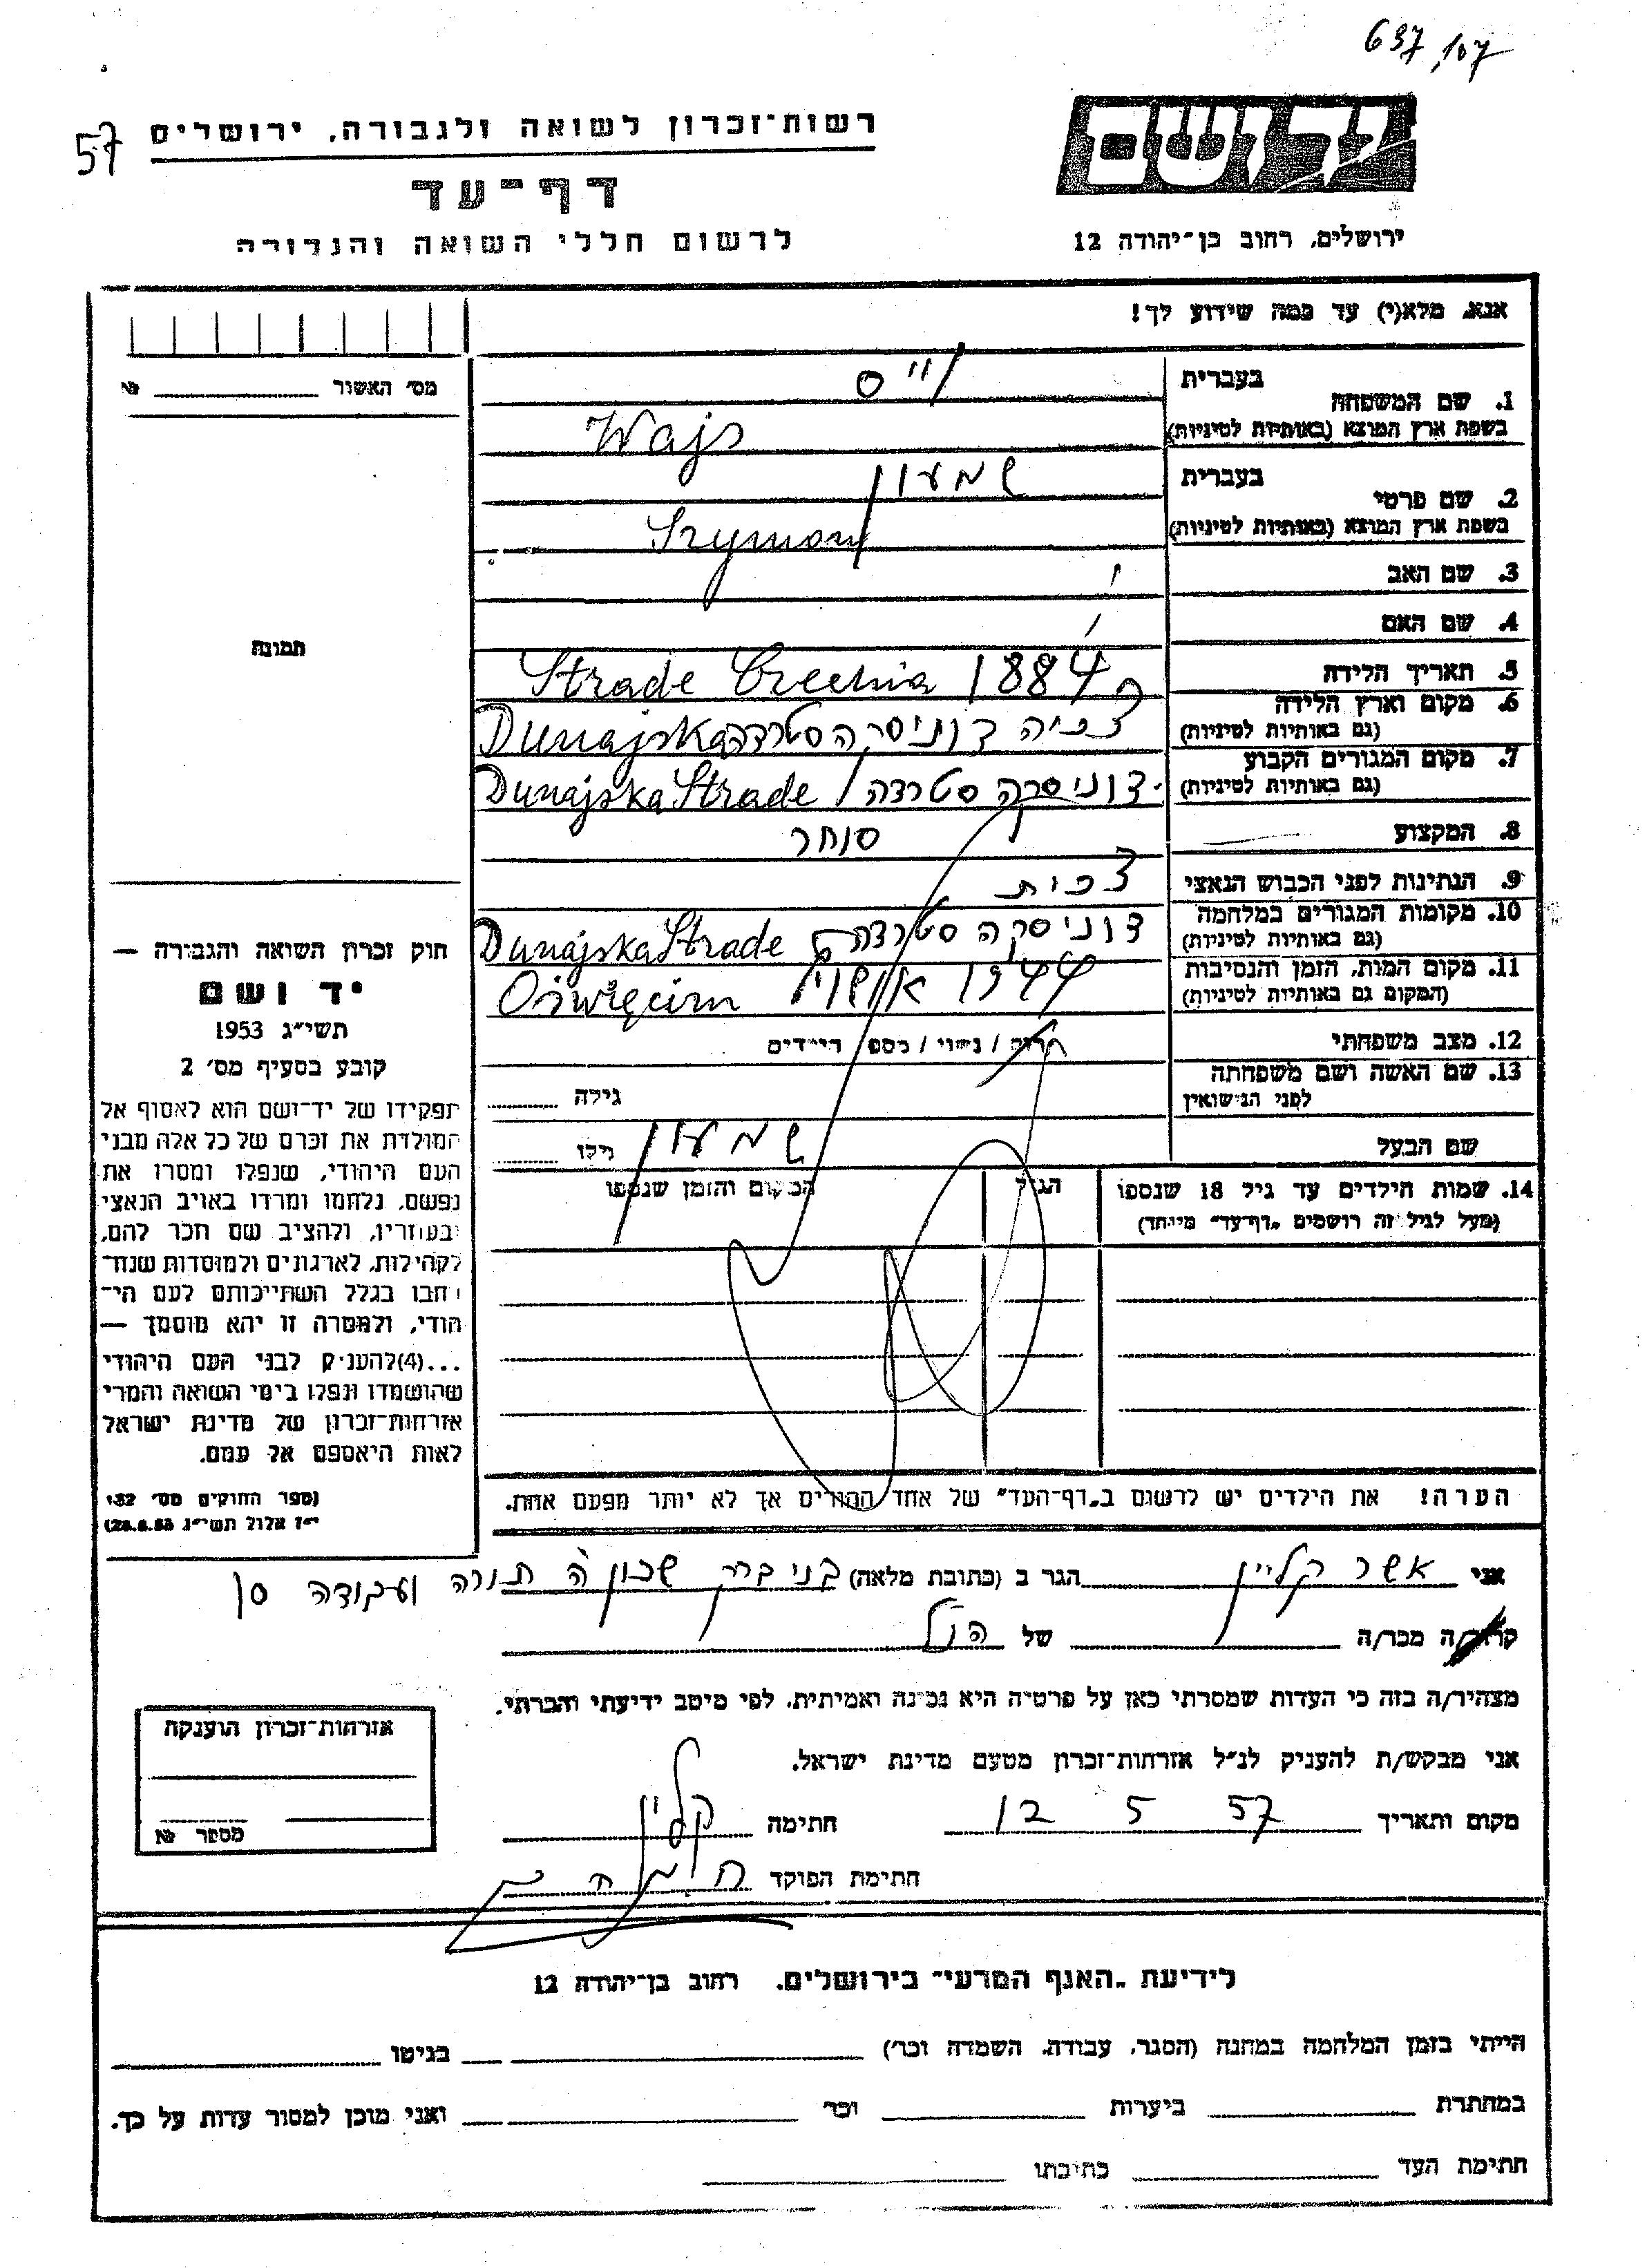 637,107
57
רשות-זכרון לשואה ולגבורה, ירושלים
דף-עד
לרשום חללי השואה והגבורה
יד ושם
ירושלים, רחוב בן-יהודה 12
אנא, מלא(י) עד כמה שידוע לך!
מס׳ האשור № 
1. שם המשפחה בעברית וייס
בשפת ארץ המוצא (באותיות לטיניות) Wajs
2. שם פרטי בעברית שמעון
בשפת ארץ המוצא (באותיות לטיניות) Szymon
3. שם האב
4. שם האם
תמונה
5. תאריך הלידה 1884 Strade Czechia
6. מקום וארץ הלידה
(גם באותיות לטיניות) צכיה דוניסקה סטרדה Dunajska
7. מקום המגורים הקבוע
(גם באותיות לטיניות) דוניסקה סטרדה Dunajska Strade
8. המקצוע סוחר
9. הנתינות לפני הכבוש הנאצי צכית
10. מקומות המגורים במלחמה
(גם באותיות לטיניות) דוניסקה סטרדה Dunajska Strade
11. מקום המות, הזמן והנסיבות
(המקום גם באותיות לטיניות) 1944 Oświęcim
12. מצב משפחתי רווק / נשוי / מספר הילדים
13. שם האשה ושם משפחתה
לפני הנישואין גילה
שם הבעל שמעון גילו
14. שמות הילדים עד גיל 18 שנספו הגיל המקום והזמן שנספו
(מעל לגיל זה רושמים "דף-עד" מיוחד)
הערה! את הילדים יש לרשום ב"דף-העד" של אחד ההורים אך לא יותר מפעם אחת.
חוק זכרון השואה והגבורה —
יד ושם
תשי״ג 1953
קובע בסעיף מס׳ 2
תפקידו של יד-ושם הוא לאסוף אל
המולדת את זכרם של כל אלה מבני
העם היהודי, שנפלו ומסרו את
נפשם, נלחמו ומרדו באויב הנאצי
ובעוזריו, ולהציב שם וזכר להם,
לקהילות, לארגונים ולמוסדות שנח-
רבו בגלל השתייכותם לעם הי-
הודי, ולמטרה זו יהא מוסמך —
...(4) להעניק לבני העם היהודי
שהושמדו ונפלו בימי השואה והמרי
אזרחות-זכרון של מדינת ישראל
לאות היאספם אל עמם.
(ספר החוקים מס׳ 132
י״ז אלול תשי״ג 28.8.53)
אני אשר קליין הגר ב (כתובת מלאה) בני ברק שכון ה תורה ועבודה
קרוב/ה מכר/ה של הנ״ל
מצהיר/ה בזה כי העדות שמסרתי כאן על פרטיה היא נכונה ואמיתית, לפי מיטב ידיעתי והכרתי.
אני מבקש/ת להעניק לנ״ל אזרחות-זכרון מטעם מדינת ישראל.
מקום ותאריך 12 5 57 חתימה קליין
חתימת הפוקד
אזרחות-זכרון הוענקה
מספר №
לידיעת "האגף המדעי" בירושלים, רחוב בן-יהודה 12
הייתי בזמן המלחמה במחנה (הסגר, עבודה, השמדה וכו׳) בגיטו
במחתרת ביערות וכו׳ ואני מוכן למסור עדות על כך.
חתימת העד כתובתו